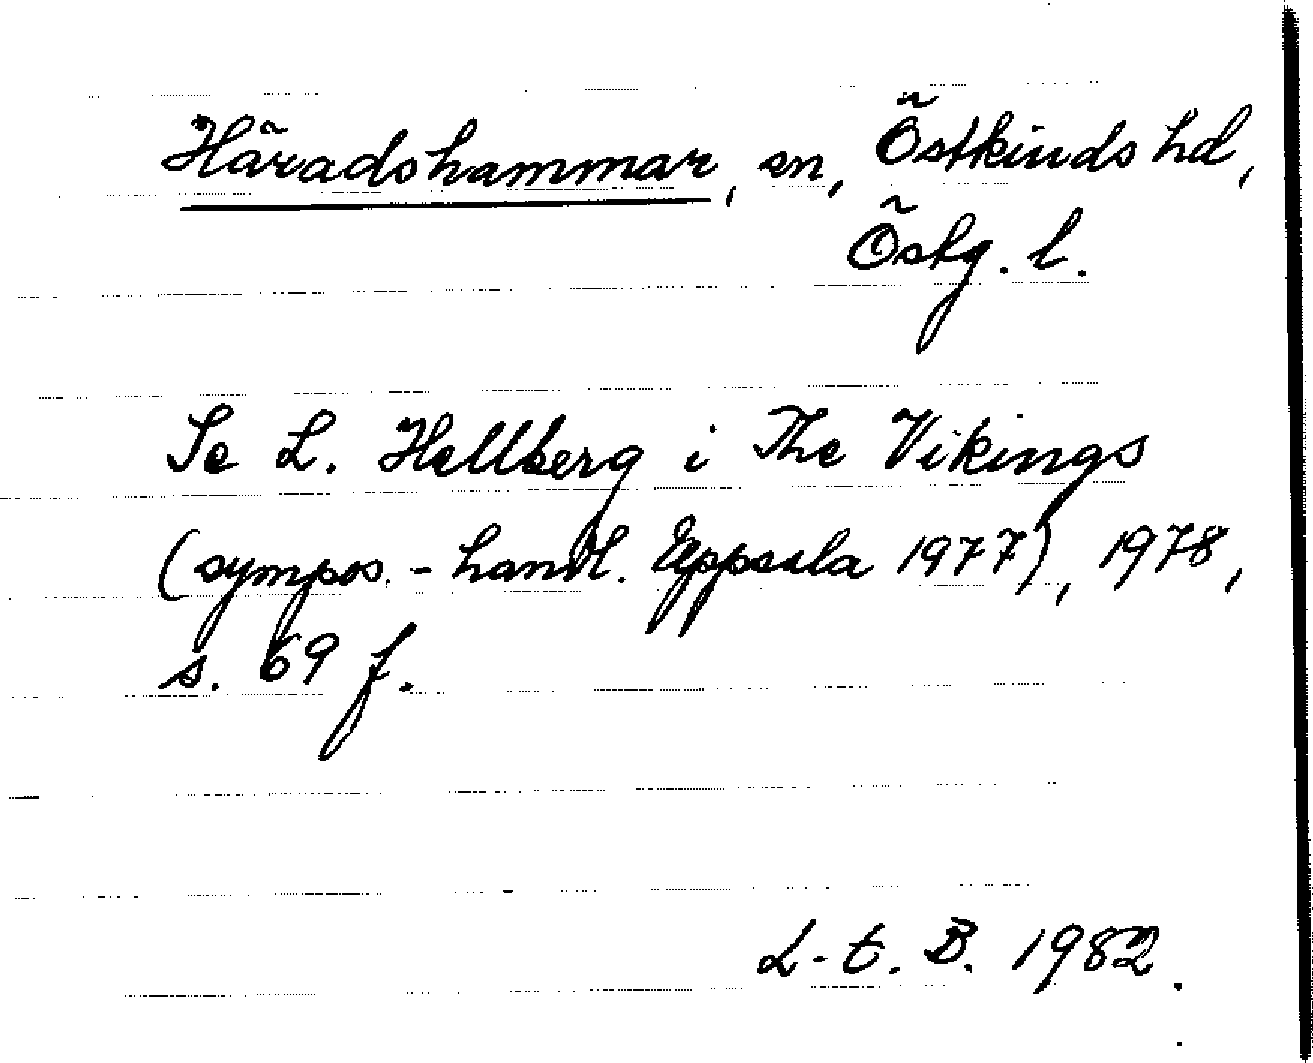 Häradshammar, sn, Östkinds hd,
Östg. l.
Se L. Hellberg i The Vikings
(sympos.-handl. Uppsala 1977), 1978,
s. 69 f.
L-t. B. 1982.